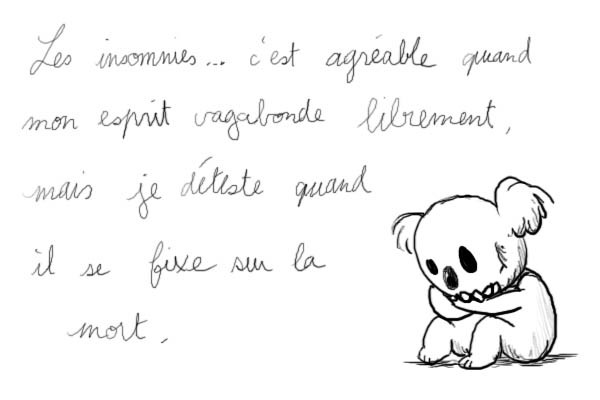 Les insomnies... c'est agréable quand
mon esprit vagabonde librement,
mais je déteste quand
il se fixe sur la
mort.